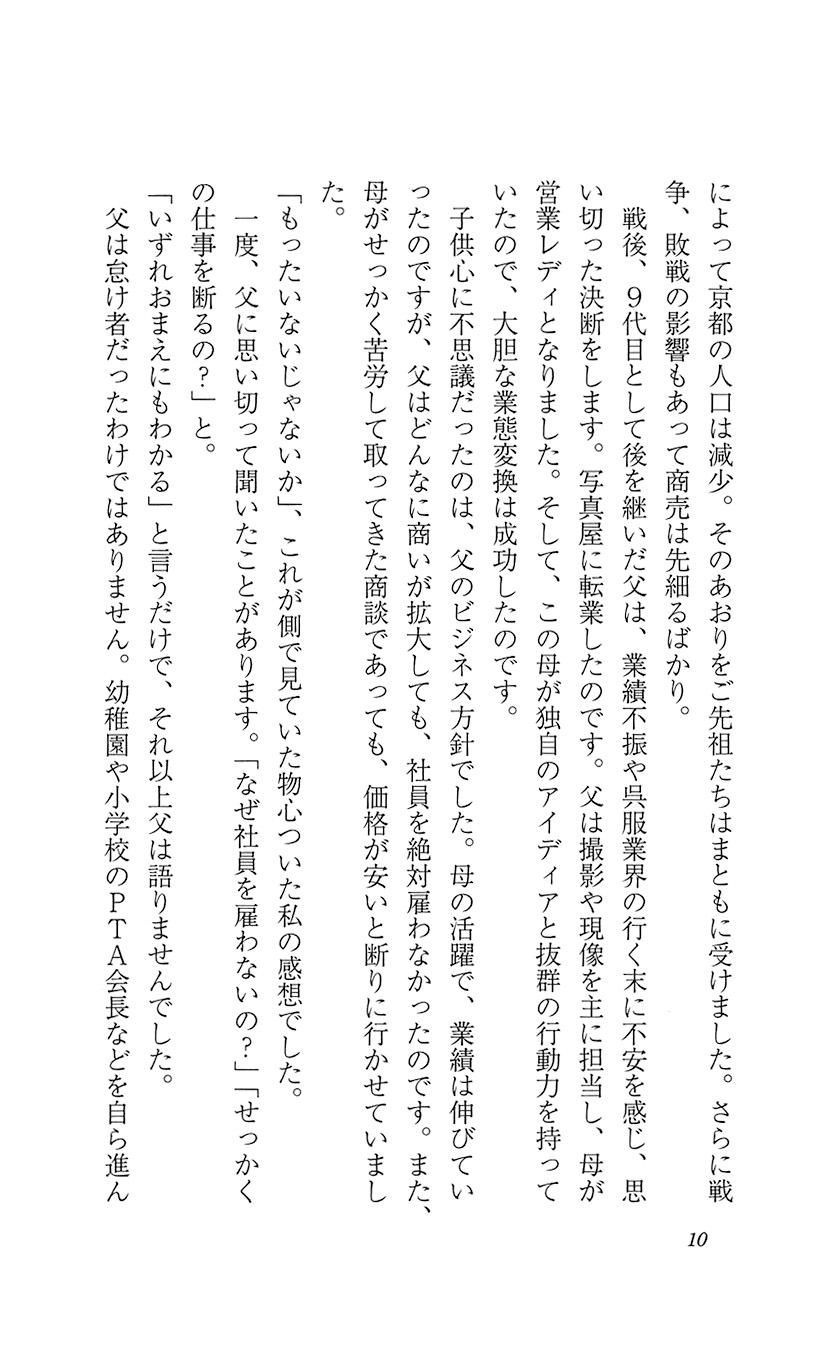 によって京都の人口は減少。そのあおりをご先祖たちはまともに受けました。さらに戦
争、敗戦の影響もあって商売は先細るばかり。
　戦後、9代目として後を継いだ父は、業績不振や呉服業界の行く末に不安を感じ、思
い切った決断をします。写真屋に転業したのです。父は撮影や現像を主に担当し、母が
営業レディとなりました。そして、この母が独自のアイディアと抜群の行動力を持って
いたので、大胆な業態変換は成功したのです。
　子供心に不思議だったのは、父のビジネス方針でした。母の活躍で、業績は伸びてい
ったのですが、父はどんなに商いが拡大しても、社員を絶対雇わなかったのです。また、
母がせっかく苦労して取ってきた商談であっても、価格が安いと断りに行かせていまし
た。
「もったいないじゃないか」、これが側で見ていた物心ついた私の感想でした。
　一度、父に思い切って聞いたことがあります。「なぜ社員を雇わないの？」「せっかく
の仕事を断るの？」と。
「いずれおまえにもわかる」と言うだけで、それ以上父は語りませんでした。
　父は怠け者だったわけではありません。幼稚園や小学校のＰＴＡ会長などを自ら進ん
10